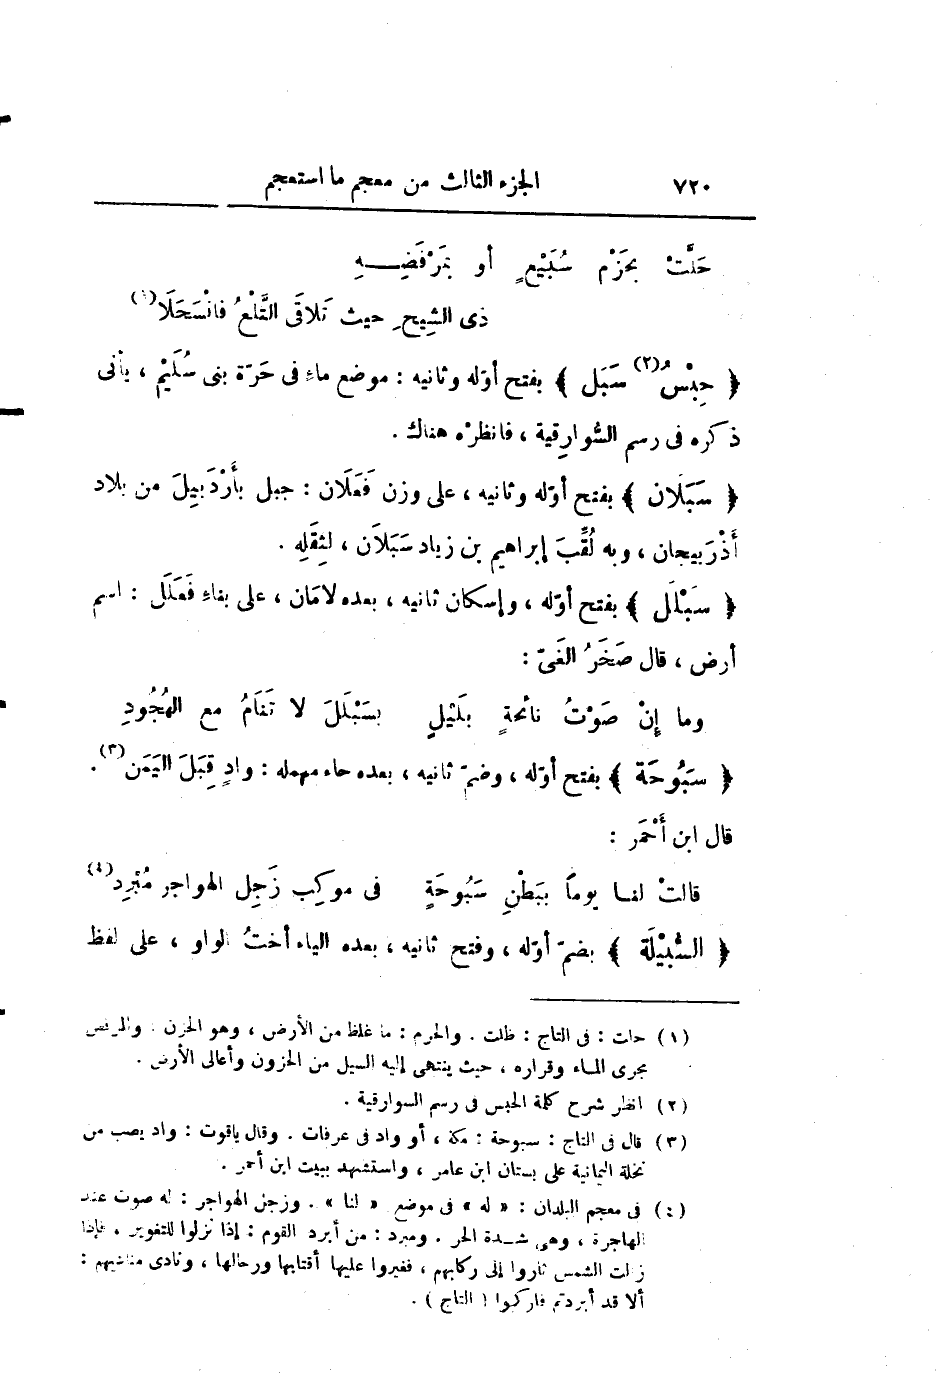 ٧٢٠
الجزء الثالث من معجم ما استعجم
حَلَّتْ بحَزْم سُبَيْعٍ أو بمَرْفَضِــهِ
ذى الشِيح حيث تَلاقَى التَّلْعُ فانْسَحَلَا(١)
﴿ حِبْسُ(٢) سَبَل ﴾ بفتح أوّله وثانيه : موضع ماءٍ فى حَرّة بنى سُلَيْم ، يأتى
ذكره فى رسم السُّوارقية ، فانظرْه هناك .
﴿ سَبَلَان ﴾ بفتح أوّله وثانيه ، على وزن فَعَلَان : جبل بأَرْدَبيلَ من بلاد
أَذْرَبيجان ، وبه لُقِّبَ إبراهيم بن زياد سَبَلَان ، لثِقَلِه .
﴿ سَبْلَل ﴾ بفتح أوّله ، وإسكان ثانيه ، بعده لامَان ، على بناءِ فَعْلَل : اسم
أرض ، قال صَخَرُ الغَىّ :
وما إِنْ صَوْتُ نائحةٍ بلَيْلٍ بسَبْلَلَ لا تَنَامُ مع الهُجُودِ
﴿ سَبُوحَة ﴾ بفتح أوّله ، وضمّ ثانيه ، بعده حاء مهمله : وادٍ قِبَلَ اليَمَن(٣) .
قال ابن أَحْمَر :
قالتْ لنا يوماً ببَطْنِ سَبُوحَةٍ فى موكِب زَجِل الهواجر مُبْرِد(٤)
﴿ السُّبَيْلَة ﴾ بضمّ أوّله ، وفتح ثانيه ، بعده الياء أختُ الواو ، على لفظ
(١) حلت : فى التاج : ظلت . والحزم : ما غلظ من الأرض ، وهو الحزن . والمرفض
مجرى الماء وقراره ، حيث ينتهى إليه السيل من الحزون وأعالى الأرض .
(٢) انظر شرح كلمة الحبس فى رسم السوارقية .
(٣) قال فى التاج : سبوحة : مكة ، أو واد فى عرفات . وقال ياقوت : واد يصب من
نخلة اليمانية على بستان ابن عامر ، واستشهد ببيت ابن أحمر .
(٤) فى معجم البلدان : « له » فى موضع « لنا » . وزجل الهواجر : له صوت عند
الهاجرة ، وهى شــدة الحر . ومبرد : من أبرد القوم : إذا نزلوا للتغوير . فإذا
زالت الشمس ثاروا إلى ركابهم ، فغيروا عليها أقتابها ورحالها ، ونادى مناديهم :
ألا قد أبردتم فاركبوا ( التاج ) .